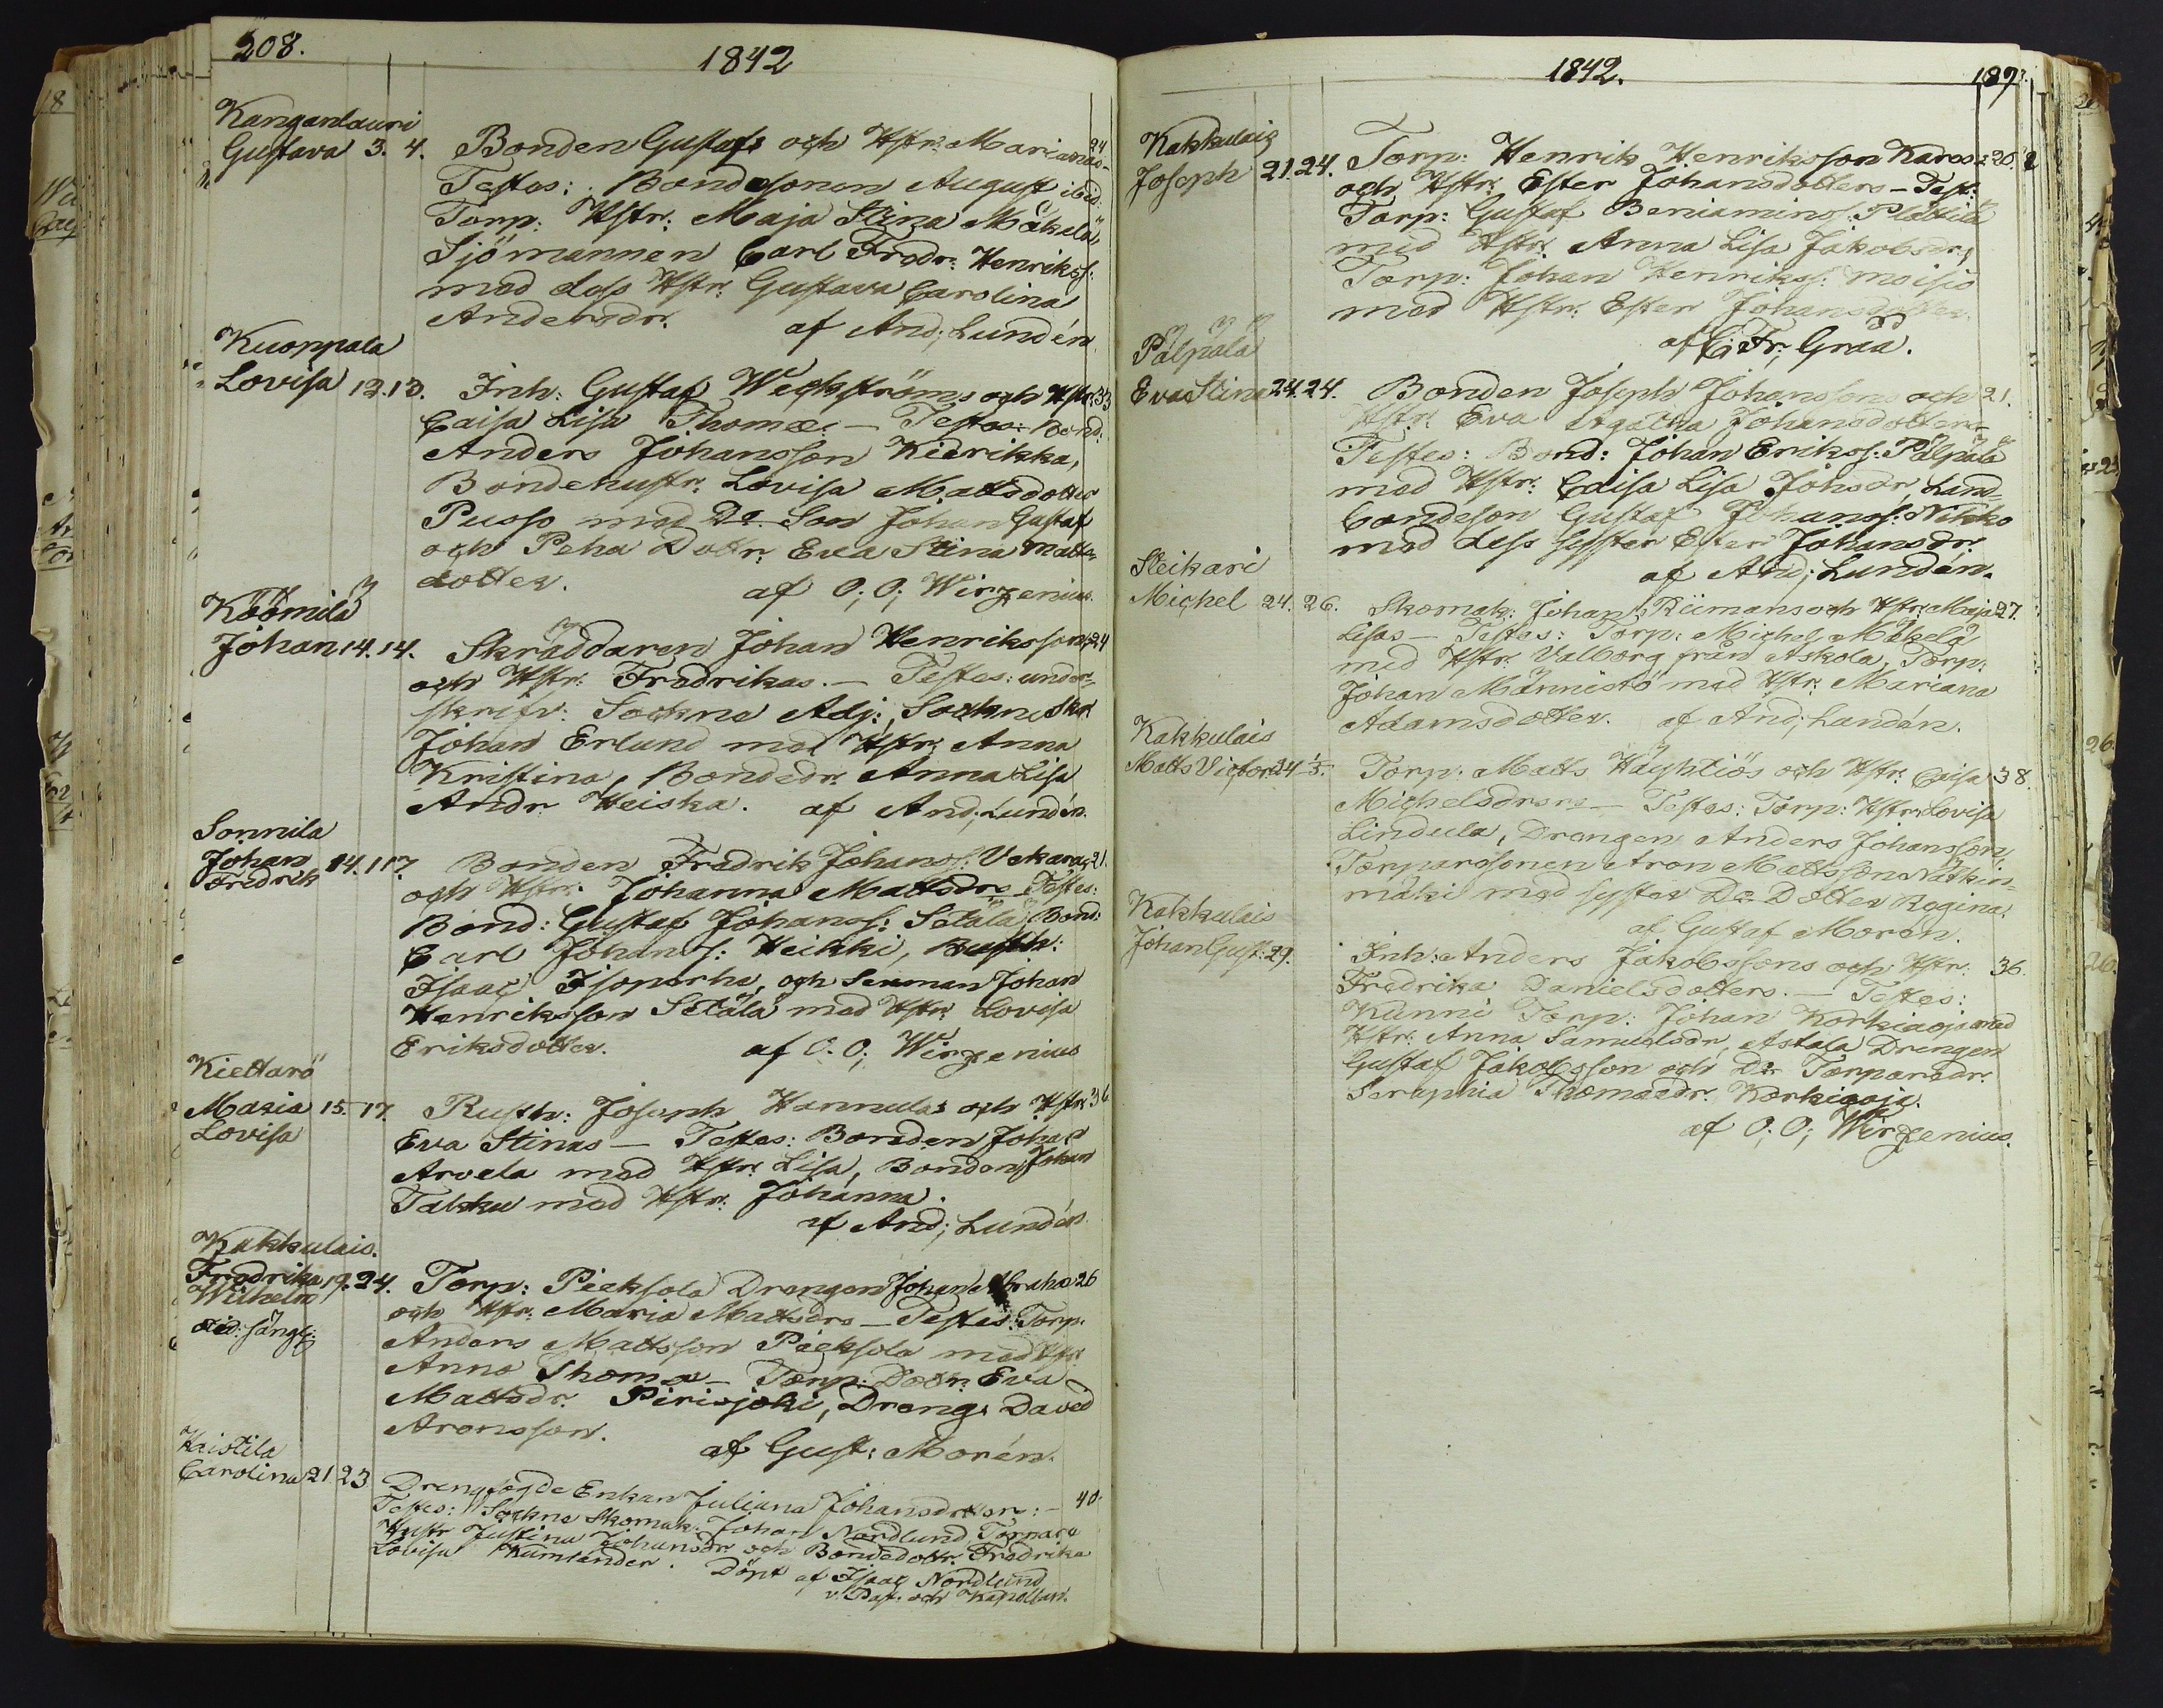 208.
1842
Kanganlauri
Gustava 3. 4. Bonden Gustafs och Hstr: Marianas 24
Testes: Bondesonen August ibid:
Torp: Hstr: Maja Stina Mäkelä
Sjömannen Carl Fredr: Henrikss:
med dess Hstr: Gustava Carolina
Andersdr. af And; Lundén
Kuoppala
Lovisa 12. 13. Inh: Gustaf Weckströms och Hstr: 33
Caisa Lisa Thomæ. — Testes: Bond:
Anders Johansson Kierikka,
Bondehustr: Lovisa Mattsdotter
Pusso med Do Son Johan Gustaf
och Peha Dottr: Eva Stina Matts
dotter. af O; O; Wirzenius.
Köömilä
Johan 14. 14. Skräddaren Johan Henrikssons 24
och Hstr: Fredrikas. — Testes: under-
skrifv: Sockne Adj:, Sockne Skr
Johan Erlund med Hstr: Anna
Kristina, Bondedr. Anna Lisa
Andr. Heiska. af And; Lundén.
Sonnila
Johan 14. 17. Bonden Fredrik Johanss: Vekara 21.
Fredrik
och Hstr: Johanna Mattsdrs Testes:
Bond: Gustaf Johanss: Setälä, Bond:
Carl Johanss: Heikki, Rusth:
Isaac Isoperhe, och Sexman Johan
Henriksson Setälä med Hstr: Lovisa
Eriksdotter. af O: O; Wirzenius
Kiettarö
Maria 15. 17. Rusth: Joseph Hannulas och Hstr: 36
Lovisa
Eva Stinas — Testes: Bonden Johan
Arvela med Hstr: Lisa, Bonden Johan
Takku med Hstr: Johanna.
af And; Lundén
Kakkulais.
Fredrika 19. 24. Torp: Pieksola Drengen Johan Abraha 26
Wilhelm
och Hstr: Maria Mattsdrs — Testes: Torp.
Anders Mattsson Pieksola med Hstr
Anna Thomæ — Torp: Dottr: Eva
Mattsdr. Pirisjoki, Dreng: David
Aronsson.
af Gust: Morén.
Haistila
Carolina 21 23 Drengfogde Enkan Juliana Johansdotter: — 40.
Testes: Sockne Skomak. Johan Nordlund, Torpare
Hustr Justina Johansdr och Bondedottr. Fredrika
Lovisa Kumlander. Döpt af Isaac Nordlund
v. Past. och Kapellan.
1842.
189.
Kakkulais
Joseph 21. 24. Torp: Henrik Henriksson Karos 20.
och Hstr: Ester Johansdotters — Test:
Torp: Gustaf Beniamins: Plättilä
med Hstr: Anna Lisa Jakobsdr,
Torp: Johan Henrikss: Moisio
med Hstr: Ester Johansdotter
af C: Fr: Graa.
Pälpälä
Eva Stina 24. 24. Bonden Joseph Johanssons och 21.
Hstr: Eva Agatha Johansdotters —
Testes: Bond: Johan Erikss: Pälpälä
med Hstr: Caisa Lisa Johsdr, Land-
bondeson Gustaf Johanss: Nikko
med dess Syster Ester Johansdr.
af And; Lundén.
Steikari
Michel 24. 26. Skomak: Johan Riimans och Hstr: Maja 27.
Lisas — Testes: Torp: Michel Mäkelä
med Hstr: Valborg från Askola, Torp:
Johan Männistö med Hstr: Mariana
Adamsdotter. af And; Lundén.
Kakkulais
Matts Victor 24 1/5. Torp. Matts Häyhtiös och Hstr: Caisa 38.
Michelsdrers — Testes: Torp: Hstr: Lovisa
Lindula, Drengen Anders Johansson,
Torparesonen Aron Mattsson Nätkin-
mäki med syster Do Dotter Regina.
af Gustaf Morén.
Kakkulais
Johan Gust: 29. Inh: Anders Jakobssons och Hstr: 36.
Fredrika Danielsdotters. — Testes:
Kunni Torp: Johan Korkiaoja med
Hstr: Anna Samuelsdr, Astala Drengen
Gustaf Jakobsson och Do Torparedr.
Seraphia Thomasdr. Korkiaoja.
af O: O; Wirzenius.